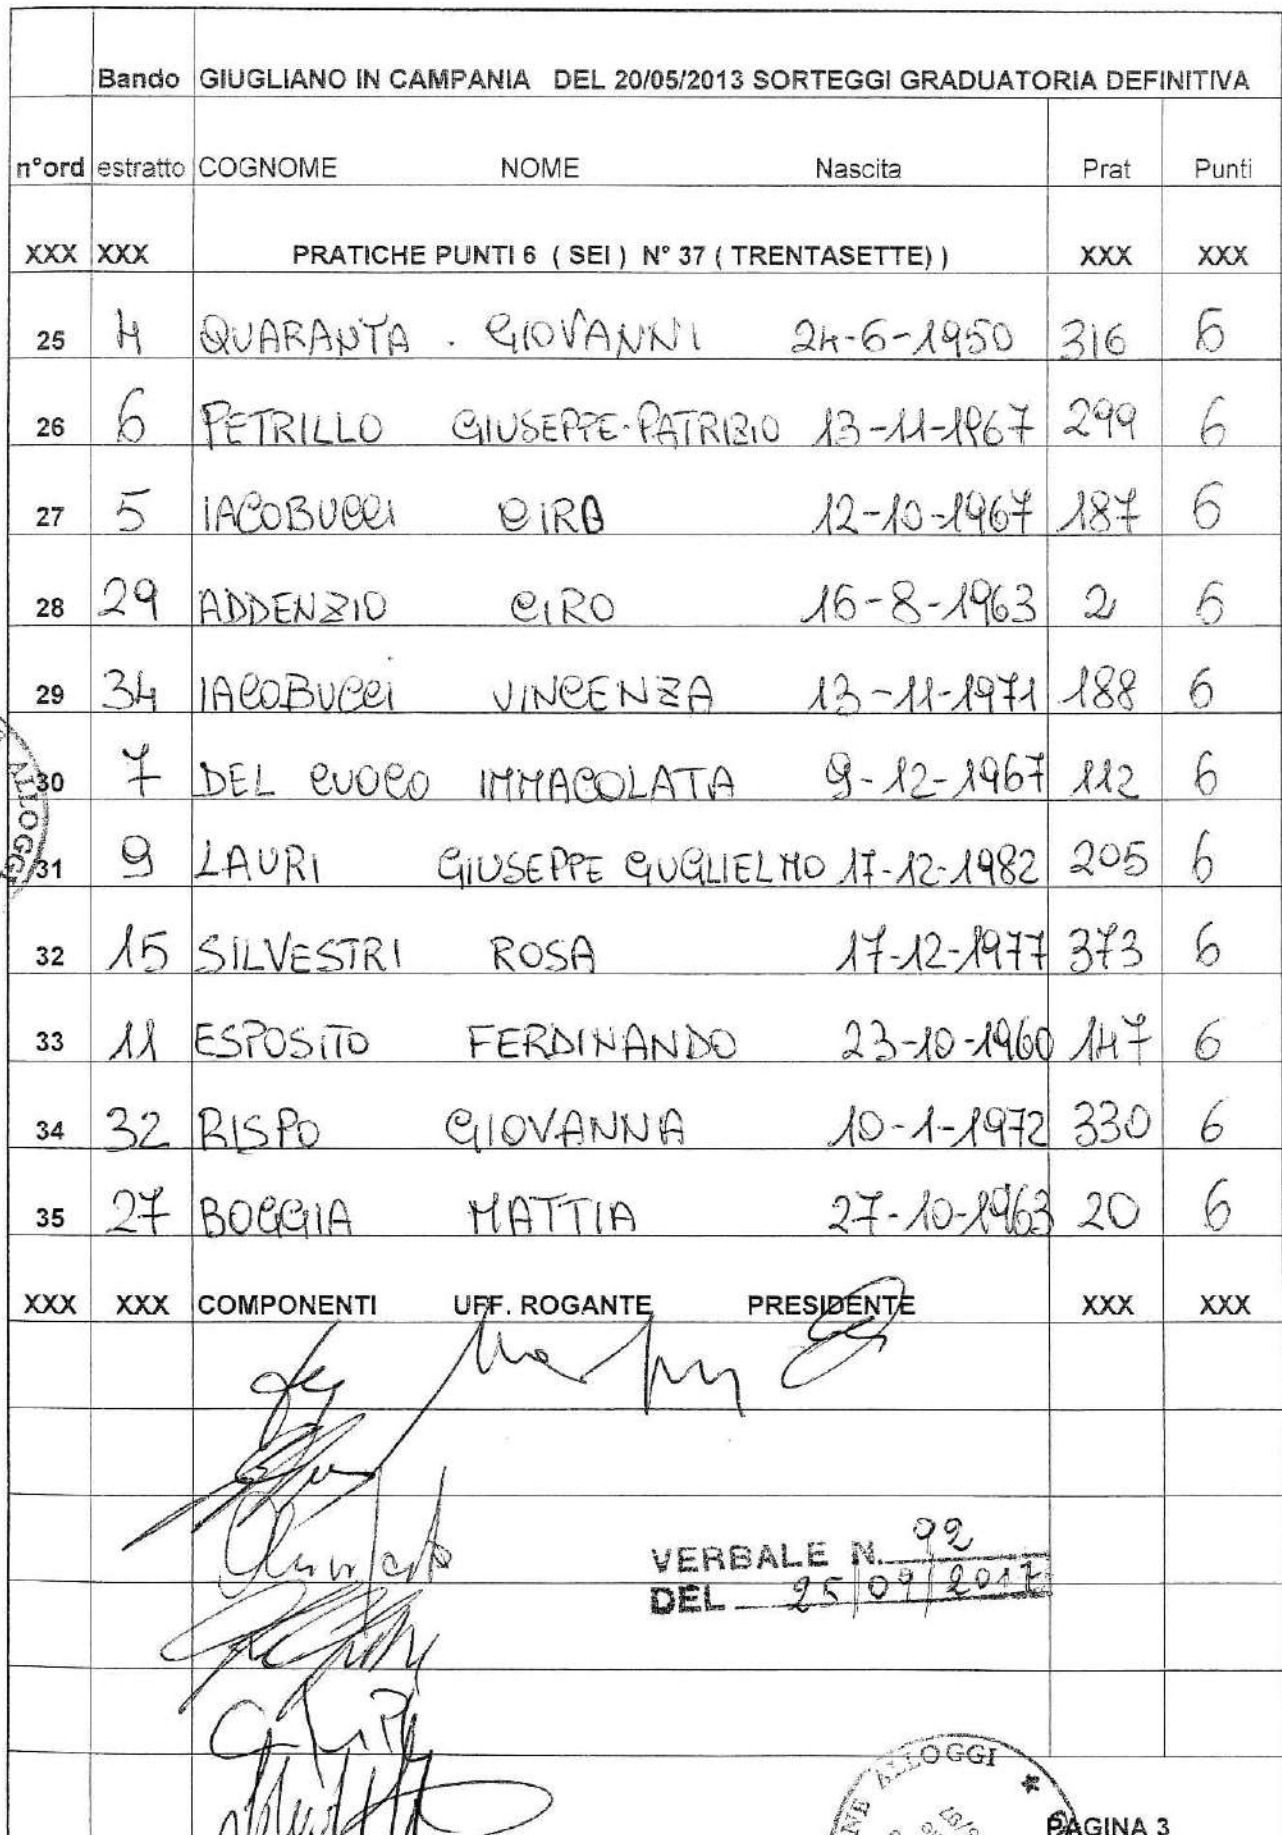 Bando GIUGLIANO IN CAMPANIA DEL 20/05/2013 SORTEGGI GRADUATORIA DEFINITIVA
n°ord estratto COGNOME NOME Nascita Prat Punti
XXX XXX PRATICHE PUNTI 6 ( SEI ) N° 37 ( TRENTASETTE) ) XXX XXX
25 4 QUARANTA . GIOVANNI 24-6-1950 316 6
26 6 PETRILLO GIUSEPPE-PATRIZIO 13-11-1967 299 6
27 5 IACOBUCCI CIRA 12-10-1967 187 6
28 29 ADDENZIO CIRO 16-8-1963 2 6
29 34 IACOBUCCI VINCENZA 13-11-1971 188 6
30 7 DEL CUOCO IMMACOLATA 9-12-1967 112 6
31 9 LAURI GIUSEPPE GUGLIELMO 17-12-1982 205 6
32 15 SILVESTRI ROSA 17-12-1977 373 6
33 11 ESPOSITO FERDINANDO 23-10-1960 147 6
34 32 RISPO GIOVANNA 10-1-1972 330 6
35 27 BOGGIA MATTIA 27-10-1963 20 6
XXX XXX COMPONENTI UFF. ROGANTE PRESIDENTE XXX XXX
VERBALE N. 92
DEL 25/09/2017
ALLOGGI
ALLOGGI
PAGINA 3